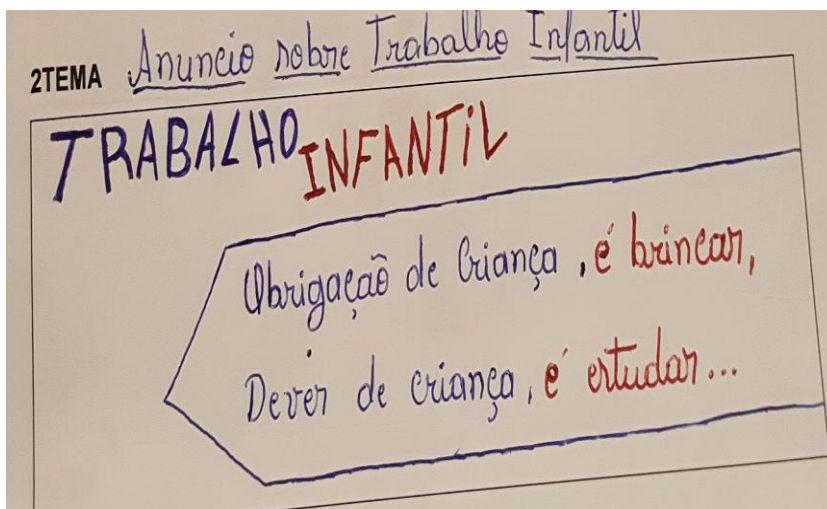 2TEMA Anuncio sobre Trabalho Infantil
TRABALHO INFANTIL
Obrigação de Criança, é brincar,
Dever de criança, é estudar...